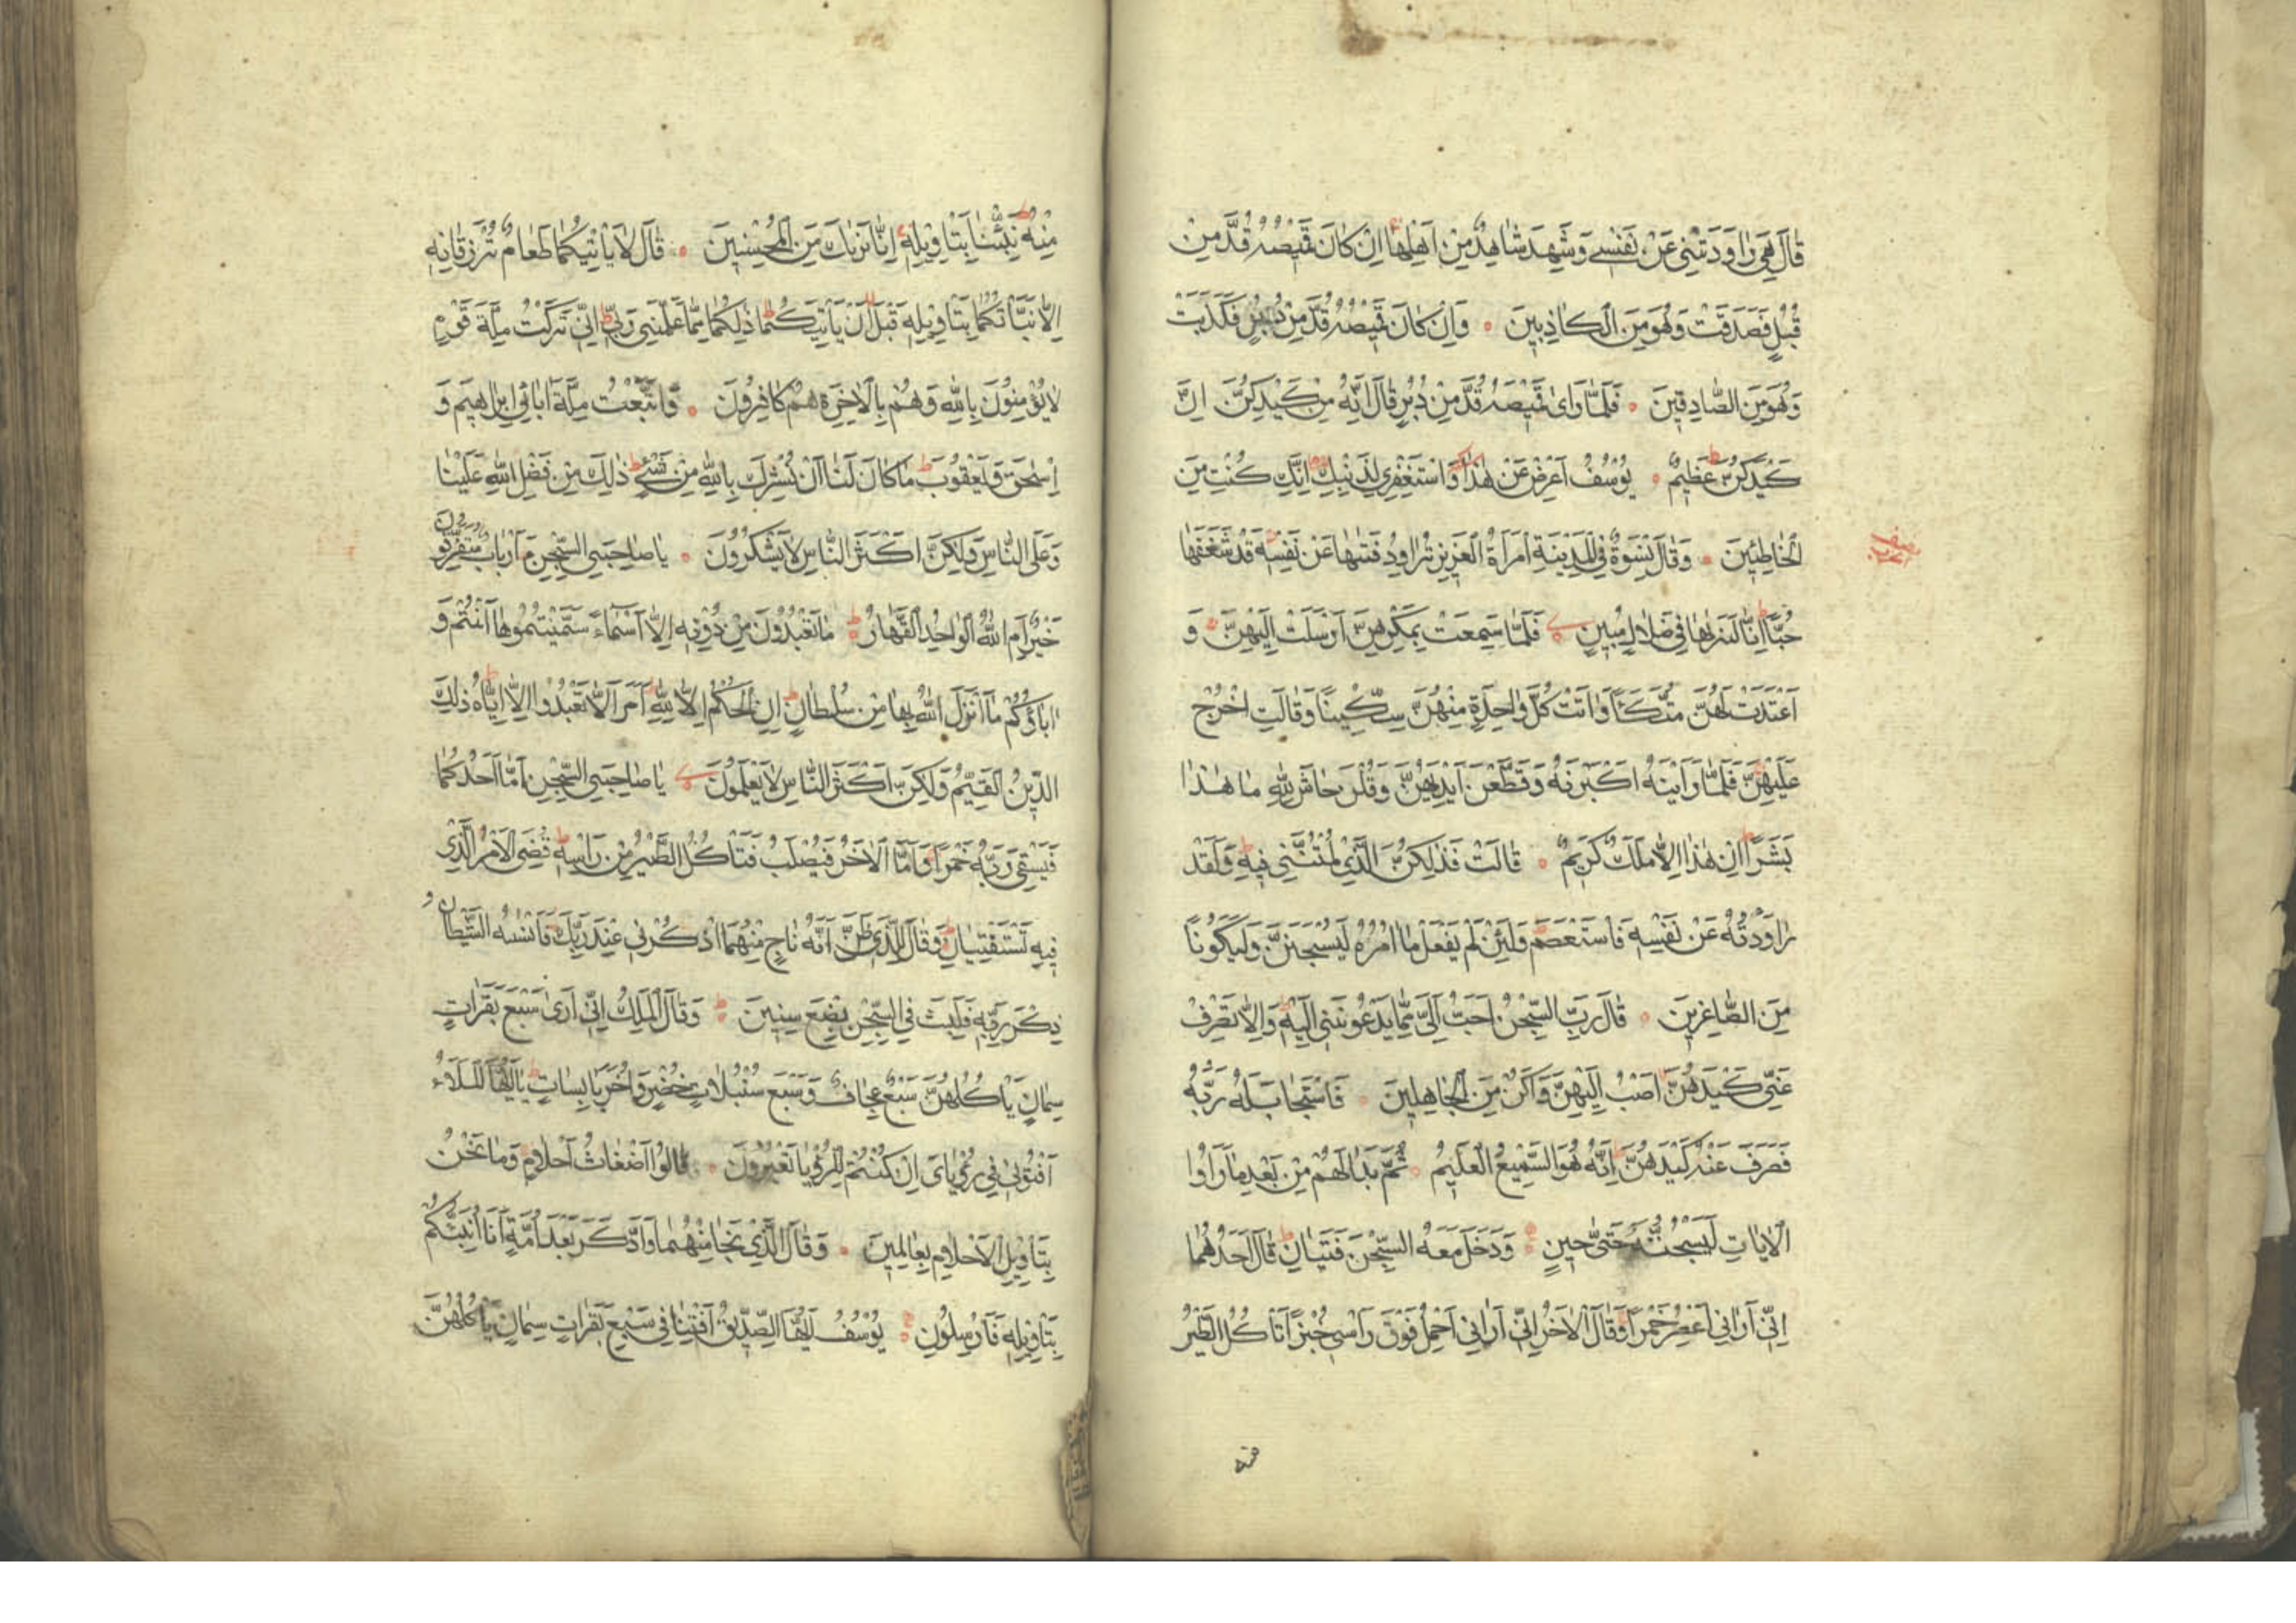 قَالَ هِيَ رَاوَدَتْنِي عَنْ نَفْسِي وَشَهِدَ شَاهِدٌ مِنْ اَهْلِهَا اِنْ كَانَ قَمِيصُهُ قُدَّ مِنْ
قُبُلٍ فَصَدَقَتْ وَهُوَ مِنَ الْكَاذِبِينَ وَاِنْ كَانَ قَمِيصُهُ قُدَّ مِنْ دُبُرٍ فَكَذَبَتْ
وَهُوَ مِنَ الصَّادِقِينَ فَلَمَّا رَاى قَمِيصَهُ قُدَّ مِنْ دُبُرٍ قَالَ اِنَّهُ مِنْ كَيْدِكُنَّ اِنَّ
كَيْدَكُنَّ عَظِيمٌ يُوسُفُ اَعْرِضْ عَنْ هٰذَا وَاسْتَغْفِرِي لِذَنْبِكِ اِنَّكِ كُنْتِ مِنَ
الْخَاطِئِينَ وَقَالَ نِسْوَةٌ فِي الْمَدِينَةِ امْرَاَةُ الْعَزِيزِ تُرَاوِدُ فَتٰيهَا عَنْ نَفْسِهِ قَدْ شَغَفَهَا
حُبًّا اِنَّا لَنَرٰيهَا فِي ضَلَالٍ مُبِينٍ فَلَمَّا سَمِعَتْ بِمَكْرِهِنَّ اَرْسَلَتْ اِلَيْهِنَّ وَ
اَعْتَدَتْ لَهُنَّ مُتَّكَـًٔا وَاٰتَتْ كُلَّ وَاحِدَةٍ مِنْهُنَّ سِكِّينًا وَقَالَتِ اخْرُجْ
عَلَيْهِنَّ فَلَمَّا رَاَيْنَهُ اَكْبَرْنَهُ وَقَطَّعْنَ اَيْدِيَهُنَّ وَقُلْنَ حَاشَ لِلّٰهِ مَا هٰذَا
بَشَرًا اِنْ هٰذَا اِلَّا مَلَكٌ كَرِيمٌ قَالَتْ فَذٰلِكُنَّ الَّذِي لُمْتُنَّنِي فِيهِ وَلَقَدْ
رَاوَدْتُهُ عَنْ نَفْسِهِ فَاسْتَعْصَمَ وَلَئِنْ لَمْ يَفْعَلْ مَا اٰمُرُهُ لَيُسْجَنَنَّ وَلَيَكُونًا
مِنَ الصَّاغِرِينَ قَالَ رَبِّ السِّجْنُ اَحَبُّ اِلَيَّ مِمَّا يَدْعُونَنِي اِلَيْهِ وَاِلَّا تَصْرِفْ
عَنِّي كَيْدَهُنَّ اَصْبُ اِلَيْهِنَّ وَاَكُنْ مِنَ الْجَاهِلِينَ فَاسْتَجَابَ لَهُ رَبُّهُ
فَصَرَفَ عَنْهُ كَيْدَهُنَّ اِنَّهُ هُوَ السَّمِيعُ الْعَلِيمُ ثُمَّ بَدَا لَهُمْ مِنْ بَعْدِ مَا رَاَوُا
الْاٰيَاتِ لَيَسْجُنُنَّهُ حَتّٰى حِينٍ وَدَخَلَ مَعَهُ السِّجْنَ فَتَيَانِ قَالَ اَحَدُهُمَا
اِنِّي اَرَانِي اَعْصِرُ خَمْرًا وَقَالَ الْاٰخَرُ اِنِّي اَرَانِي اَحْمِلُ فَوْقَ رَاْسِي خُبْزًا تَاْكُلُ الطَّيْرُ
منه
مِنْهُ نَبِّئْنَا بِتَاْوِيلِهِ اِنَّا نَرٰيكَ مِنَ الْمُحْسِنِينَ قَالَ لَا يَاْتِيكُمَا طَعَامٌ تُرْزَقَانِهِ
اِلَّا نَبَّاْتُكُمَا بِتَاْوِيلِهِ قَبْلَ اَنْ يَاْتِيَكُمَا ذٰلِكُمَا مِمَّا عَلَّمَنِي رَبِّي اِنِّي تَرَكْتُ مِلَّةَ قَوْمٍ
لَا يُؤْمِنُونَ بِاللّٰهِ وَهُمْ بِالْاٰخِرَةِ هُمْ كَافِرُونَ وَاتَّبَعْتُ مِلَّةَ اٰبَائِي اِبْرٰهِيمَ وَ
اِسْحٰقَ وَيَعْقُوبَ مَا كَانَ لَنَا اَنْ نُشْرِكَ بِاللّٰهِ مِنْ شَيْءٍ ذٰلِكَ مِنْ فَضْلِ اللّٰهِ عَلَيْنَا
وَعَلَى النَّاسِ وَلٰكِنَّ اَكْثَرَ النَّاسِ لَا يَشْكُرُونَ يَا صَاحِبَيِ السِّجْنِ ءَاَرْبَابٌ مُتَفَرِّقُونَ
خَيْرٌ اَمِ اللّٰهُ الْوَاحِدُ الْقَهَّارُ مَا تَعْبُدُونَ مِنْ دُونِهِ اِلَّا اَسْمَاءً سَمَّيْتُمُوهَا اَنْتُمْ وَ
اٰبَاؤُكُمْ مَا اَنْزَلَ اللّٰهُ بِهَا مِنْ سُلْطَانٍ اِنِ الْحُكْمُ اِلَّا لِلّٰهِ اَمَرَ اَلَّا تَعْبُدُوا اِلَّا اِيَّاهُ ذٰلِكَ
الدِّينُ الْقَيِّمُ وَلٰكِنَّ اَكْثَرَ النَّاسِ لَا يَعْلَمُونَ يَا صَاحِبَيِ السِّجْنِ اَمَّا اَحَدُكُمَا
فَيَسْقِي رَبَّهُ خَمْرًا وَاَمَّا الْاٰخَرُ فَيُصْلَبُ فَتَاْكُلُ الطَّيْرُ مِنْ رَاْسِهِ قُضِيَ الْاَمْرُ الَّذِي
فِيهِ تَسْتَفْتِيَانِ وَقَالَ لِلَّذِي ظَنَّ اَنَّهُ نَاجٍ مِنْهُمَا اذْكُرْنِي عِنْدَ رَبِّكَ فَاَنْسٰيهُ الشَّيْطَانُ
ذِكْرَ رَبِّهِ فَلَبِثَ فِي السِّجْنِ بِضْعَ سِنِينَ وَقَالَ الْمَلِكُ اِنِّي اَرٰى سَبْعَ بَقَرَاتٍ
سِمَانٍ يَاْكُلُهُنَّ سَبْعٌ عِجَافٌ وَسَبْعَ سُنْبُلَاتٍ خُضْرٍ وَاُخَرَ يَابِسَاتٍ يَا اَيُّهَا الْمَلَاُ
اَفْتُونِي فِي رُؤْيَايَ اِنْ كُنْتُمْ لِلرُّؤْيَا تَعْبُرُونَ قَالُوا اَضْغَاثُ اَحْلَامٍ وَمَا نَحْنُ
بِتَاْوِيلِ الْاَحْلَامِ بِعَالِمِينَ وَقَالَ الَّذِي نَجَا مِنْهُمَا وَادَّكَرَ بَعْدَ اُمَّةٍ اَنَا اُنَبِّئُكُمْ
بِتَاْوِيلِهِ فَاَرْسِلُونِ يُوسُفُ اَيُّهَا الصِّدِّيقُ اَفْتِنَا فِي سَبْعِ بَقَرَاتٍ سِمَانٍ يَاْكُلُهُنَّ